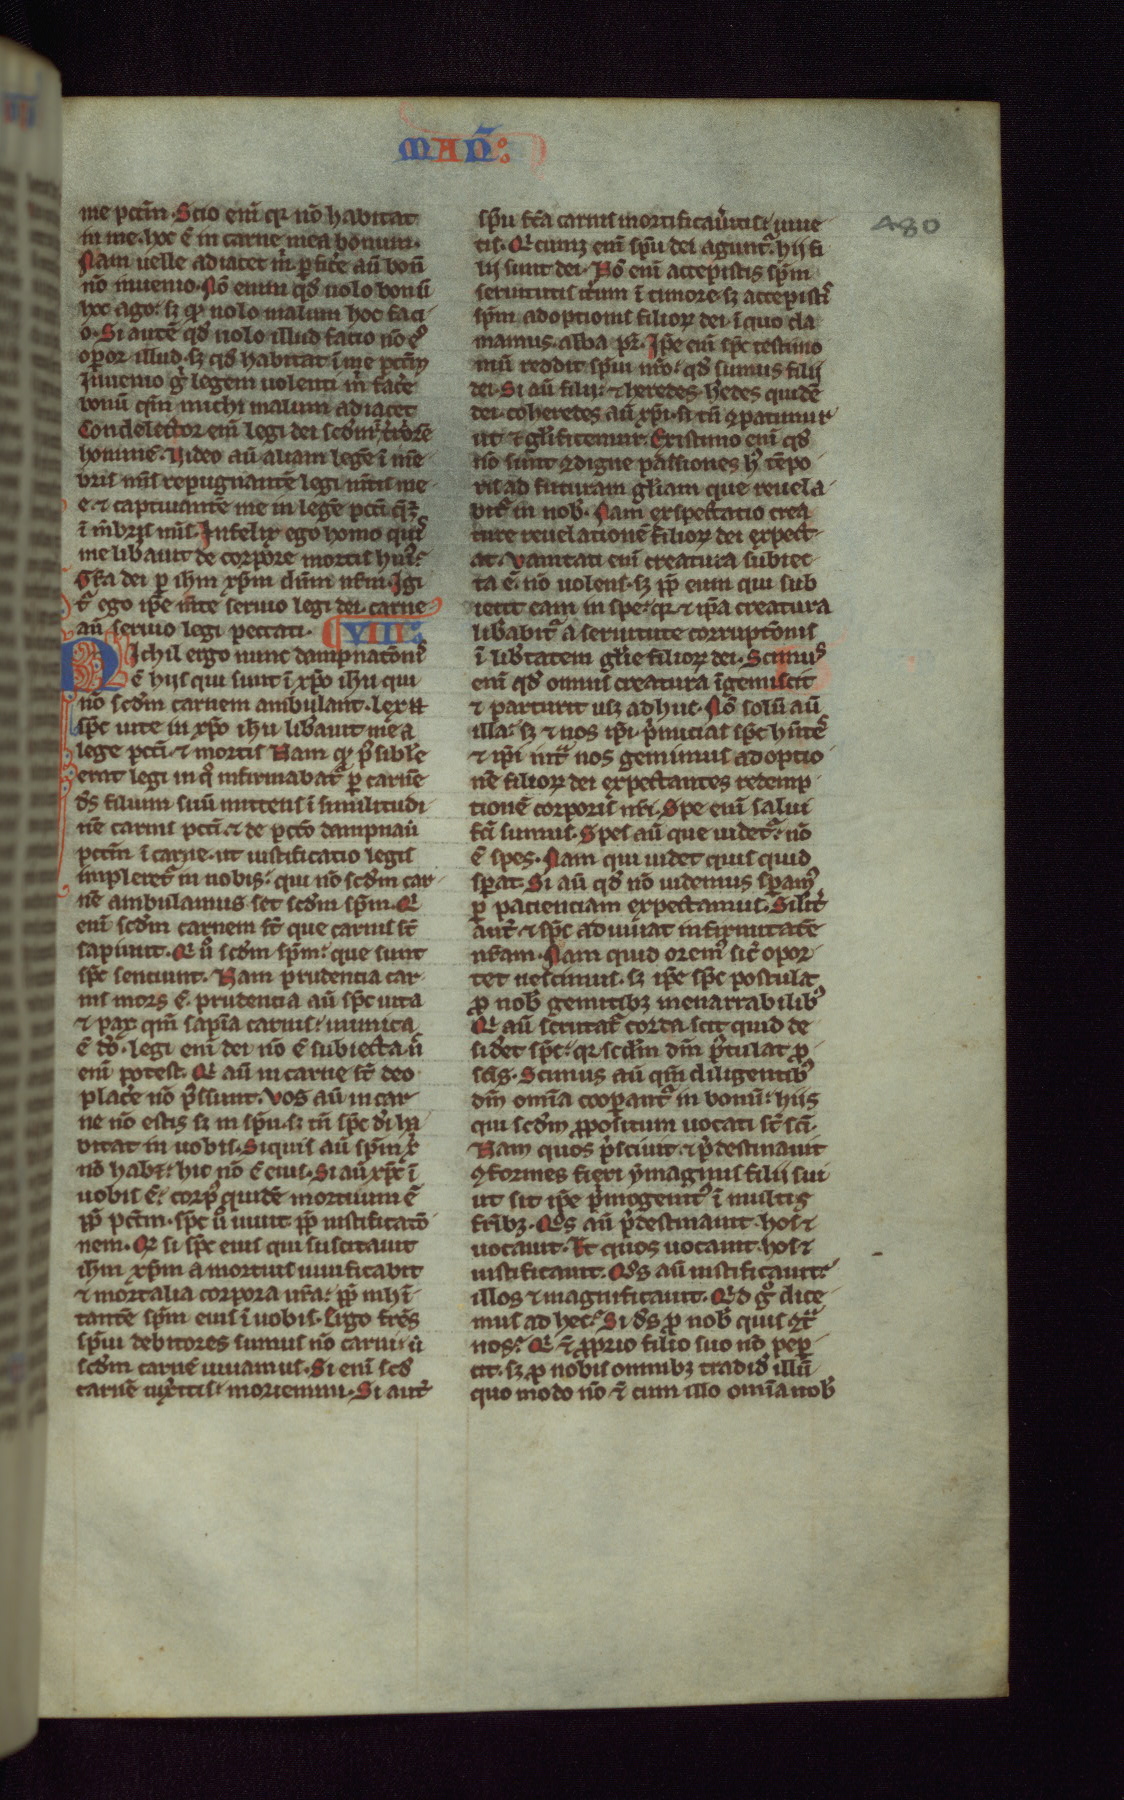 MAN̄:
480
me pctm̄. Scio eni̅ qr no̅ habitat
in me. hoc ē in carne mea bonum.
Nam uelle adiacet m̍ p̲fic̍e au̅ bonu̅
no̅ inuenio. No̅ enim qd̍ uolo bonu̅
hoc ago: sꝫ qd̍ nolo malum hoc faci
o. Si aute̅ qd̍ nolo illud facio no̅ e᷒
op̲or illud. sꝫ qd̍ habitat i̅ me pctm̅
Inuenio g̍ legem uolenti m̍ fac̍e
bonu̅ qm̅ michi malum adiacet
Condelector eni̅ legi dei scdm̅ i̅t̍iore̅
homine̅. Video au̅ aliam lege̅ i̅ me̅
bris m̅is repugnante̅ legi m̅tis me
e. ⁊ captiuante̅ me in lege̅ pcti̅ q̅ ē
i̅ m̅bris m̅is. Infelix ego homo quis
me lib̍auit de corpore mortis hui᷒:
Gr̅a dei p̲ ihm̅ xp̅m dn̅m nr̅m. Igi
t̍ ego ip̅e me̅te seruio legi dei. carne
au̅ seruio legi peccati. VIII.
Nichil ergo nunc dampnaco̅nis
ē hiis qui sunt i̅ xp̅o ihu̅ qui
no̅ scdm̅ carnem ambulant. Lex
sp̅c uite in xp̅o ihu̅ lib̍auit me a
lege pcti̅. ⁊ mortis Nam qd̍ i̅possibile
erat legi in q̍ infirmabat̍ p̲ carne̅
ds̅ filium suu̅ mittens i̅ similitudi
ne̅ carnis pcti̅. ⁊ de pcc̅o dampnau̅
pctm̅ i̅ carne. ut iustificatio legis
impleret̍ in nobis: qui no̅ scdm̅ car
ne̅ ambulamus set scdm̅ sp̅m. Q̍
eni̅ scdm̅ carnem st̅ que carnis st̅
sapiunt. Q̍ u᷒ scdm̅ sp̅m: que sunt
sp̅c senciunt. Nam prudencia car
nis mors ē. prudencia au̅ sp̅c uita
⁊ pax qm̅ sapi̅a carnis: inimica
ē do̅. legi eni̅ dei no̅ ē subiecta n̅
eni̅ potest. Q̍ au̅ in carne st̅ deo
plac̍e no̅ possunt. Vos au̅ in car
ne no̅ estis sꝫ in sp̅u. sꝫ tn̅ sp̅c di̅ ha
bitat in uobis. Siquis au̅ sp̅m x̅
no̅ habet: hic no̅ ē eius. Si au̅ xp̅c i̅
uobis ē: corp᷒ quide̅ mortuum ē
pp̅ pctm̅. sp̅c u᷒ uiuit pp̅ iustificato̅
nem. Q̍ si sp̅c eius qui suscitauit
ihm̅ xp̅m a mortuis uiuificabit
⁊ mortalia corpora ur̅a: pp̅ inhi̅
tante̅ sp̅m eius i̅ uobis. Ergo fr̅es
sp̅ui debitores sumus no̅ carni: ut
scdm̅ carne̅ uiuamus. Si eni̅ scd̅
carne̅ uix̍itis: moriemini. Si aut̍
sp̅u fc̅a carnis mortificau̍itis: uiue
tis. Q̍cumqꝫ eni̅ sp̅u dei agunt̍: hii fi
lii sunt dei. No̅ eni̅ accepistis sp̅m
seruitutis it̍um i̅ timore. sꝫ accepist̍
sp̅m adoptionis filioꝝ dei. i̅ quo cla
mamus. abba pr̅. Ipse eni̅ sp̅c testimo
niu̅ reddit sp̅ui nr̅o: qd̍ sumus filii
dei. Si au̅ filii: ⁊ heredes. h̍edes quide̅
dei. coheredes au̅ xp̅i. si tn̅ ꝯpatimur
ut ⁊ gl̅ificemur. Existimo eni̅ qd̍
no̅ sunt ꝯdigne passiones h᷒ te̅po
ris ad futuram gl̅iam que reuela
bit̍ in nob̍. Nam exspectatio crea
ture reuelatione̅ filioꝝ dei expect
at. Vanitati eni̅ creatura subiec
ta ē no̅ uolens. sꝫ pp̅ eum qui sub
iecit eam in spe: qr ⁊ ip̅a creatura
lib̍abit̍ a seruitute corrupto̅nis
i̅ lib̍tatem gl̅ie filioꝝ dei. Scimus
eni̅ qd̍ omnis creatura i̅gemiscit
⁊ parturit usqꝫ adhuc. No̅ solu̅ au̅
illa: sꝫ ⁊ nos ip̅i p̍micias sp̅c hn̅tes
⁊ ip̅i int̍ nos gemimus adoptio
ne̅ filioꝝ dei expectantes redemp
tione̅ corporis nr̅i. Spe eni̅ salui
fc̅i sumus. Spes au̅ que uidet̍: no̅
ē spes. Nam qui uidet quis quid
sp̲at. Si au̅ qd̍ no̅ uidemus sp̲am᷒
p̲ pacienciam expectamus. Silit̍
aut̍ ⁊ sp̅c adiuuat infirmitate̅
nr̅am. Nam quid orem᷒ sic̍ opor
tet nescimus. sꝫ ip̅e sp̅c postulat
ꝓ nob̍ gemitibꝫ inenarrabilib᷒
Q̍ au̅ scrutat̍ corda scit quid de
sid̍et sp̅c: qr scdm̅ dm̅ p̅tulat ꝓ
scis̅. Scimus au̅ qm̅ diligentib᷒
dm̅ omni̅a coop̲ant̍ in bonu̅: hiis
qui scdm̅ ꝓpositum uocati st̅ sci̅.
Nam quos p̍sciuit. ⁊ p̍destinauit
ꝯformes fieri ymaginis filii sui
ut sit ip̅e p̍mogenit᷒ i̅ multis
fr̅ibꝫ. Q᷒s au̅ p̍destinauit. hos ⁊
uocauit. Et quos uocauit. hos ⁊
iustificauit. Q᷒s au̅ iustificauit:
illos ⁊ magnificauit. Q̍d g̍ dice
mus ad hec: Si ds̅ ꝓ nob̍ quis ꝯt̍
nos: Q̍ ē ꝓprio filio suo no̅ pep̲
cit. sꝫ ꝓ nobis omnibꝫ tradid̍ illu̅
quo modo no̅ ē cum illo omni̅a nob̍